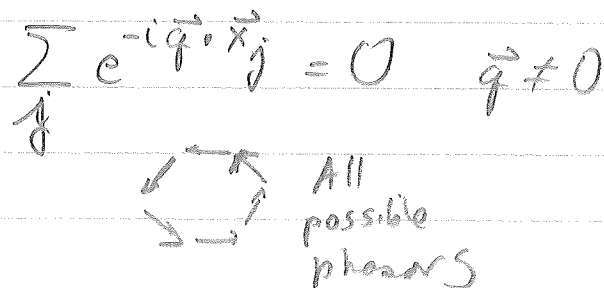 ∑ e^{-i q⃗ · x⃗_j} = 0   q⃗ ≠ 0
j
All
possible
phasors